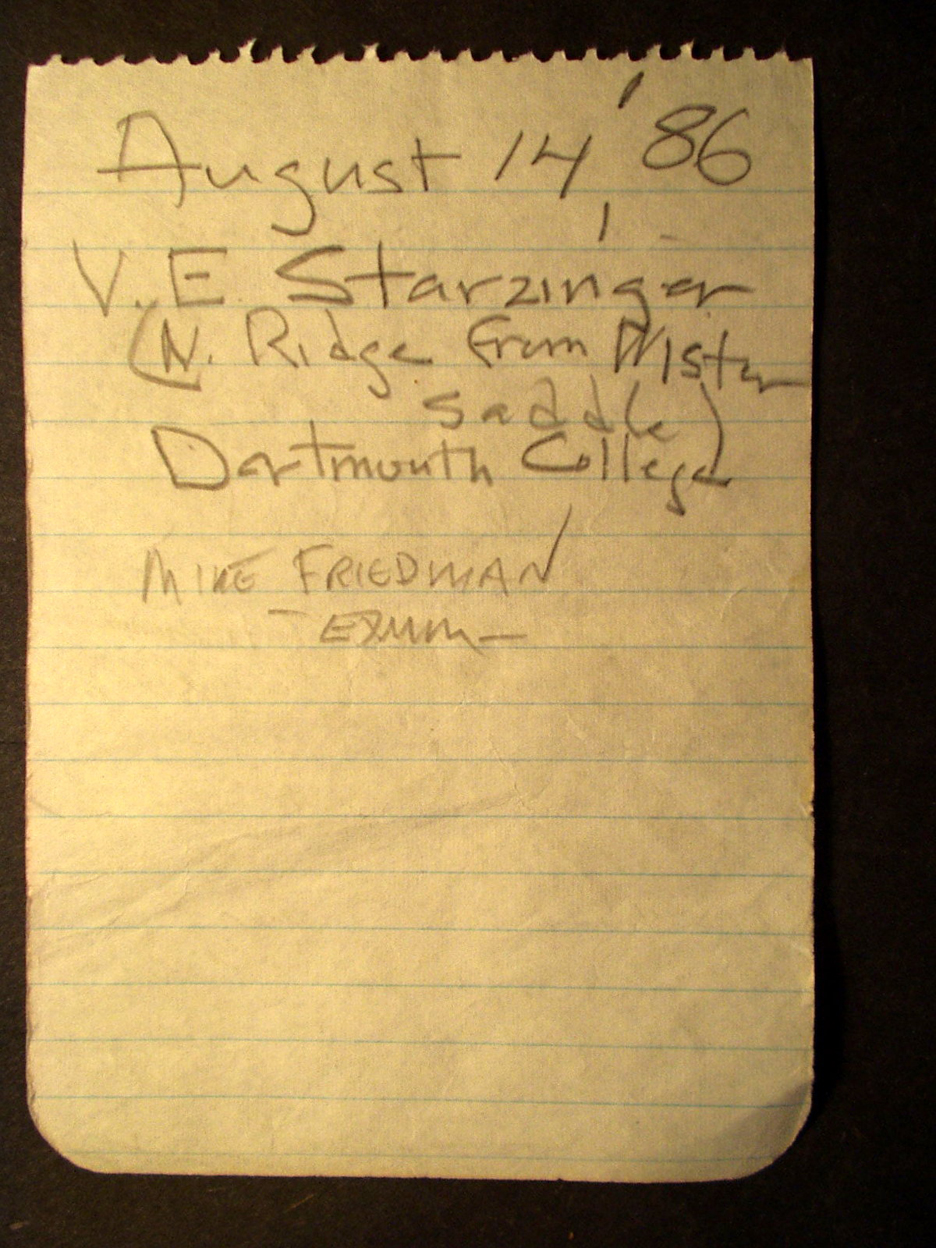 August 14 '86
V. E. Starzinger
(N. Ridge from Wister
saddle)
Dartmouth College
MIKE FRIEDMAN
- EXUM -